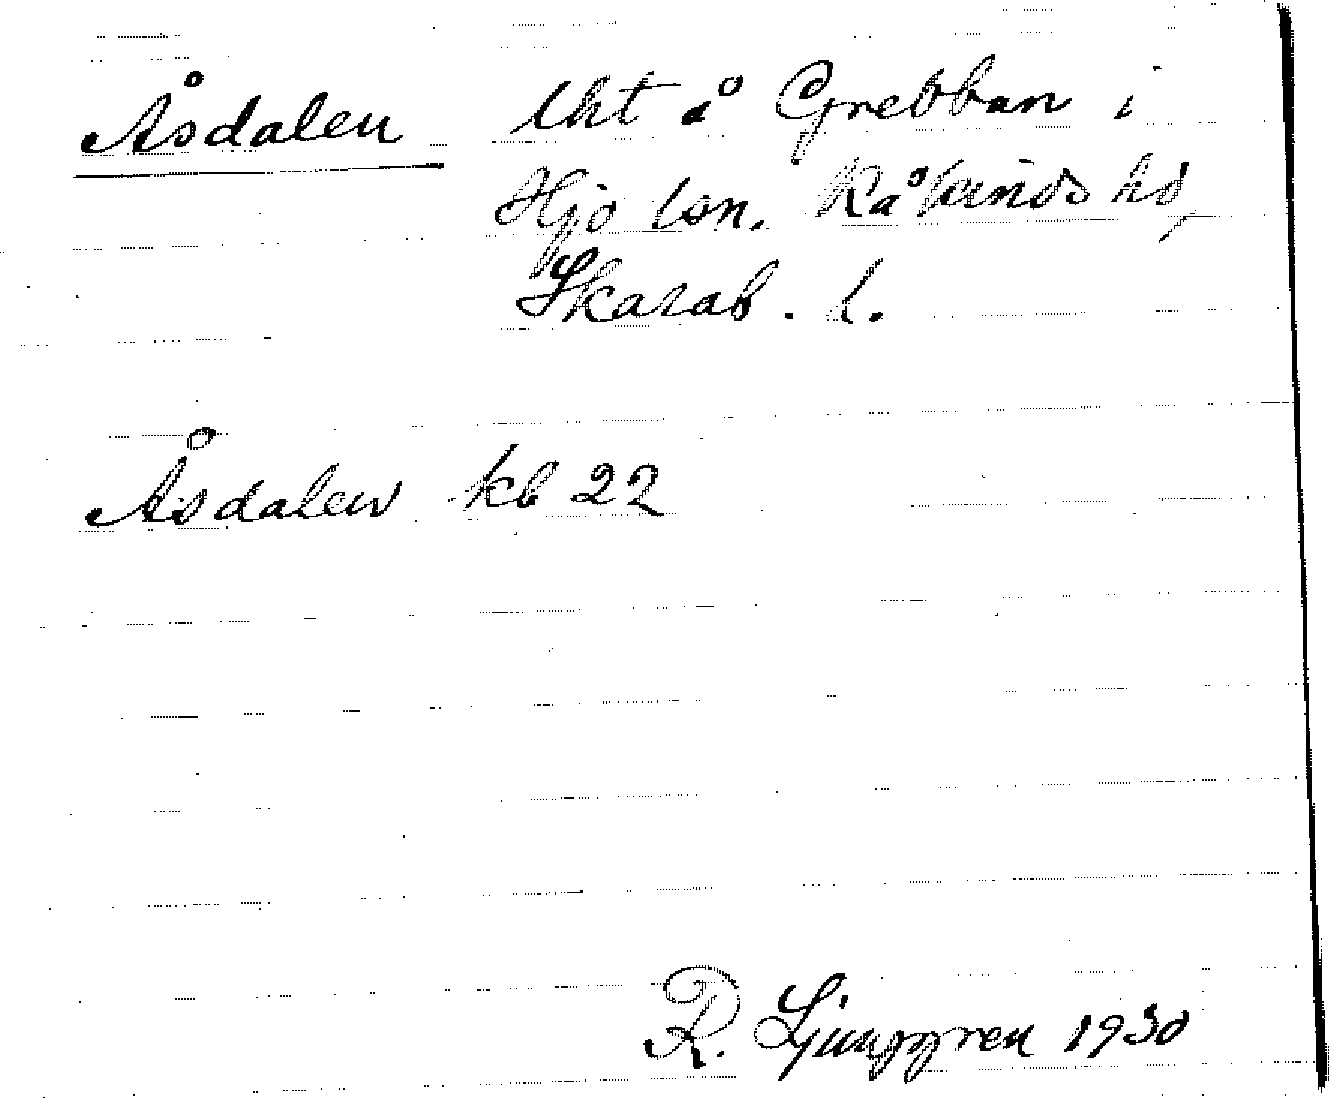 Åsdalen lht å Grebban i
Hjo lsn, Kåkinds hd,
Skarab. l.
Åsdalen kb 22
R. Ljunggren 1930